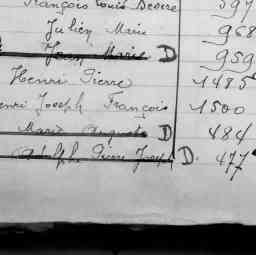 François Louis Desire 597
Julien Marie 958
Jean Marie D 959
Henri Pierre 1485
Henri Joseph François 1500
Marie Auguste D 484
Adolphe Pierre Joseph D. 477